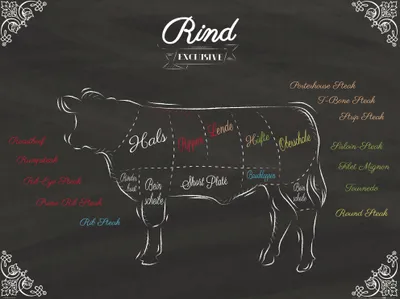 Rind
EXCLUSIVE
Porterhouse Steak
T-Bone Steak
Strip Steak
Hals
Rippe
Lende
Hüfte
Oberschale
Roastbeef
Rumpsteak
Rib-Eye-Steak
Prime Rib Steak
Rib Steak
Sirloin-Steak
Filet Mignon
Tournedo
Round Steak
Rinder
brust
Bein
scheibe
Short Plate
Bein
scheibe